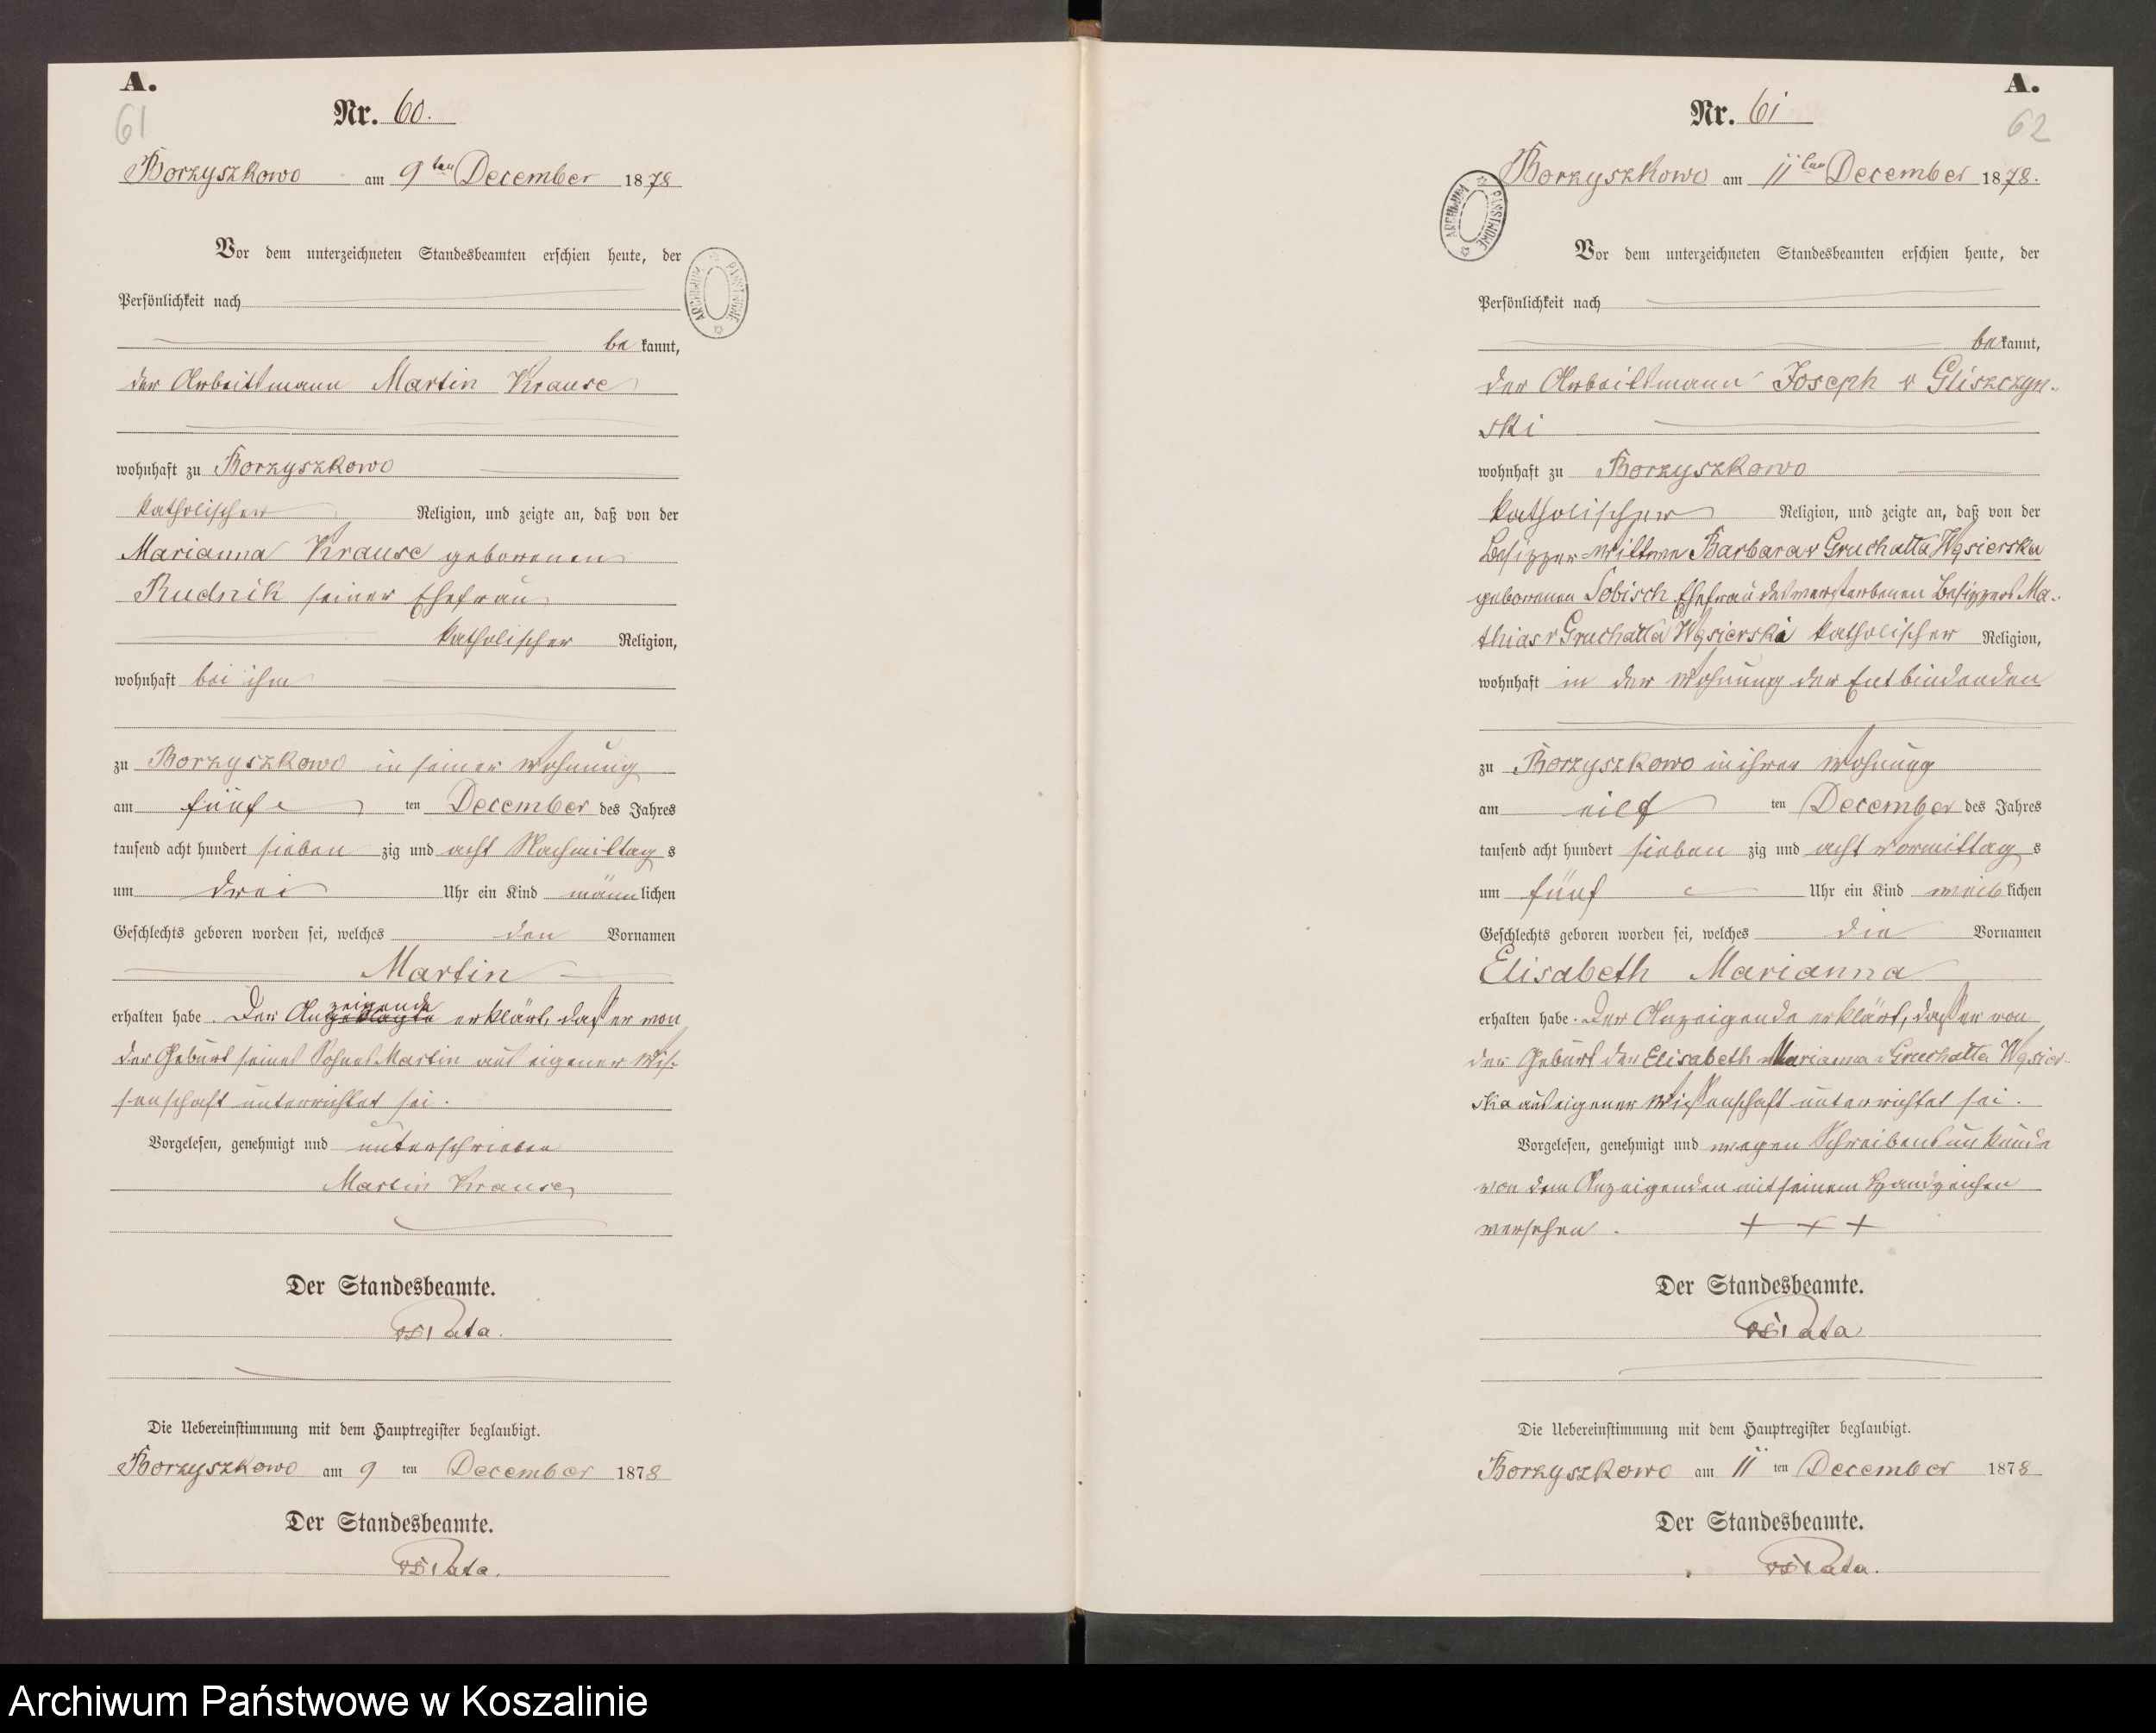 A.
61
Nr. 60.
Borzyszkowo am 9ten December 1878
Vor dem unterzeichneten Standesbeamten erschien heute, der
Persönlichkeit nach
be kannt,
der Arbeitsmann Martin Krause
wohnhaft zu Borzyszkowo
katholischer Religion, und zeigte an, daß von der
Marianna Krause geborenen
Rudnik seiner Ehefrau
katholischer Religion,
wohnhaft bei ihm
zu Borzyszkowo in seiner Wohnung
am fünf ten December des Jahres
tausend acht hundert sieben zig und acht Nachmittag s
um drei Uhr ein Kind männ lichen
Geschlechts geboren worden sei, welches den Vornamen
Martin
erhalten habe. Der Anzeigende erklärt, daß er von
der Geburt seines Sohnes Martin aus eigener Wis-
senschaft unterrichtet sei.
Vorgelesen, genehmigt und unterschrieben
Martin Krause
Der Standesbeamte.
Die Uebereinstimmung mit dem Hauptregister beglaubigt.
Borzyszkowo am 9 ten December 1878
Der Standesbeamte.
ARCHIWUM PAŃSTWOWE
A.
62
Nr. 61
Borzyszkowo am 11ten December 1878.
Vor dem unterzeichneten Standesbeamten erschien heute, der
Persönlichkeit nach
be kannt,
der Arbeitsmann Joseph v Gliszczyn-
ski
wohnhaft zu Borzyszkowo
katholischer Religion, und zeigte an, daß von der
Besitzer-Wittwe Barbara v Gruchalla Węsierska
geborenen Sobisch Ehefrau des verstorbenen Besitzers Ma-
thias v Gruchalla Węsierski katholischer Religion,
wohnhaft in der Wohnung der Entbindenden
zu Borzyszkowo in ihrer Wohnung
am eilf ten December des Jahres
tausend acht hundert sieben zig und acht Vormittag s
um fünf Uhr ein Kind weib lichen
Geschlechts geboren worden sei, welches die Vornamen
Elisabeth Marianna
erhalten habe. Der Anzeigende erklärt, daß er von
der Geburt der Elisabeth Marianna v Gruchalla Węsier-
ska aus eigener Wissenschaft unterrichtet sei.
Vorgelesen, genehmigt und wegen Schreibensunkunde
von dem Anzeigenden mit seinem Handzeichen
versehen. + + +
Der Standesbeamte.
Die Uebereinstimmung mit dem Hauptregister beglaubigt.
Borzyszkowo am 11 ten December 1878
Der Standesbeamte.
ARCHIWUM PAŃSTWOWE
Archiwum Państwowe w Koszalinie